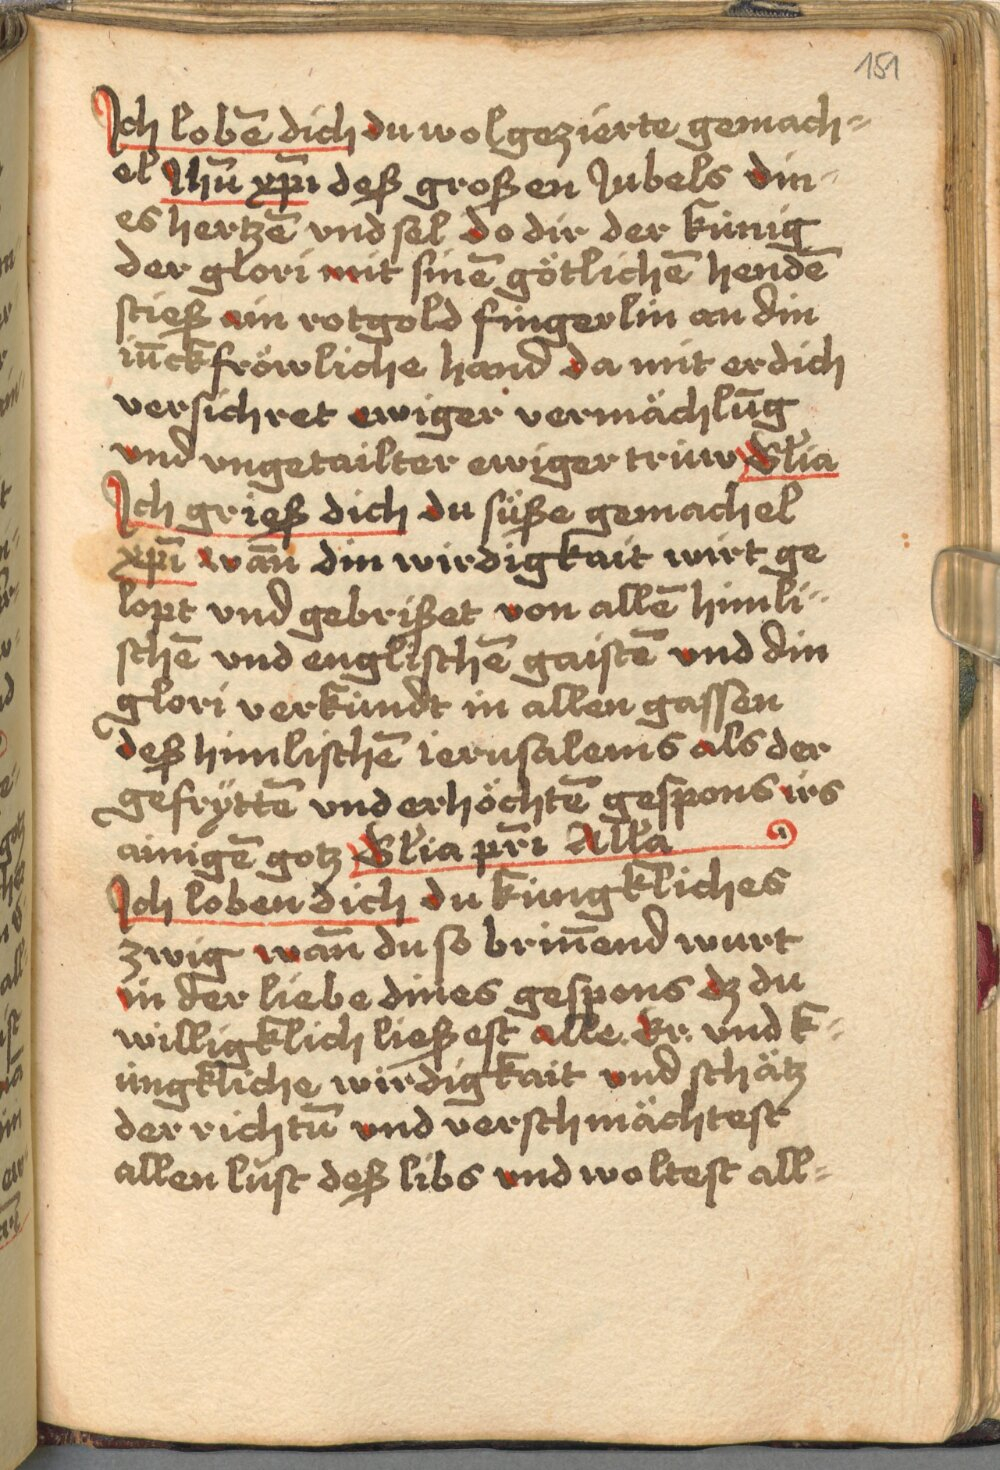 151
Ich lobē dich du wolgezierte gemach-
el Jhū xp̄i deß großen Jubels din-
es hertzē vnd sel do dir der künig
der glori mit sinē götlichē hendē
stieß ain rotgold fingerlin an din
iūckfröwliche hand da mit er dich
versichret ewiger vermächlūg
vnd vngetailter ewiger triuw Gl̄ia
Ich grieß dich du süße gemachel
xp̄i wān din wirdigkait wirt ge
lopt vnd gebrißet von allē himli-
schē vnd englischē gaistē vnd din
glori verkündt in allen gassen
deß himlischē ierusalems als der
gefryttē vnd erhöchtē gespons irs
ainigē gotz Gl̄ia pr̄i All̄a
Ich loben dich du küngkliches
zwig wān du so brinēnd wurt
in der liebe dines gespons dz du
willigklich ließest alle. Er. vnd k-
üngkliche wirdigkait vnd schätz
der richtū vnd verschmächtest
allen lust deß libs vnd woltest all-